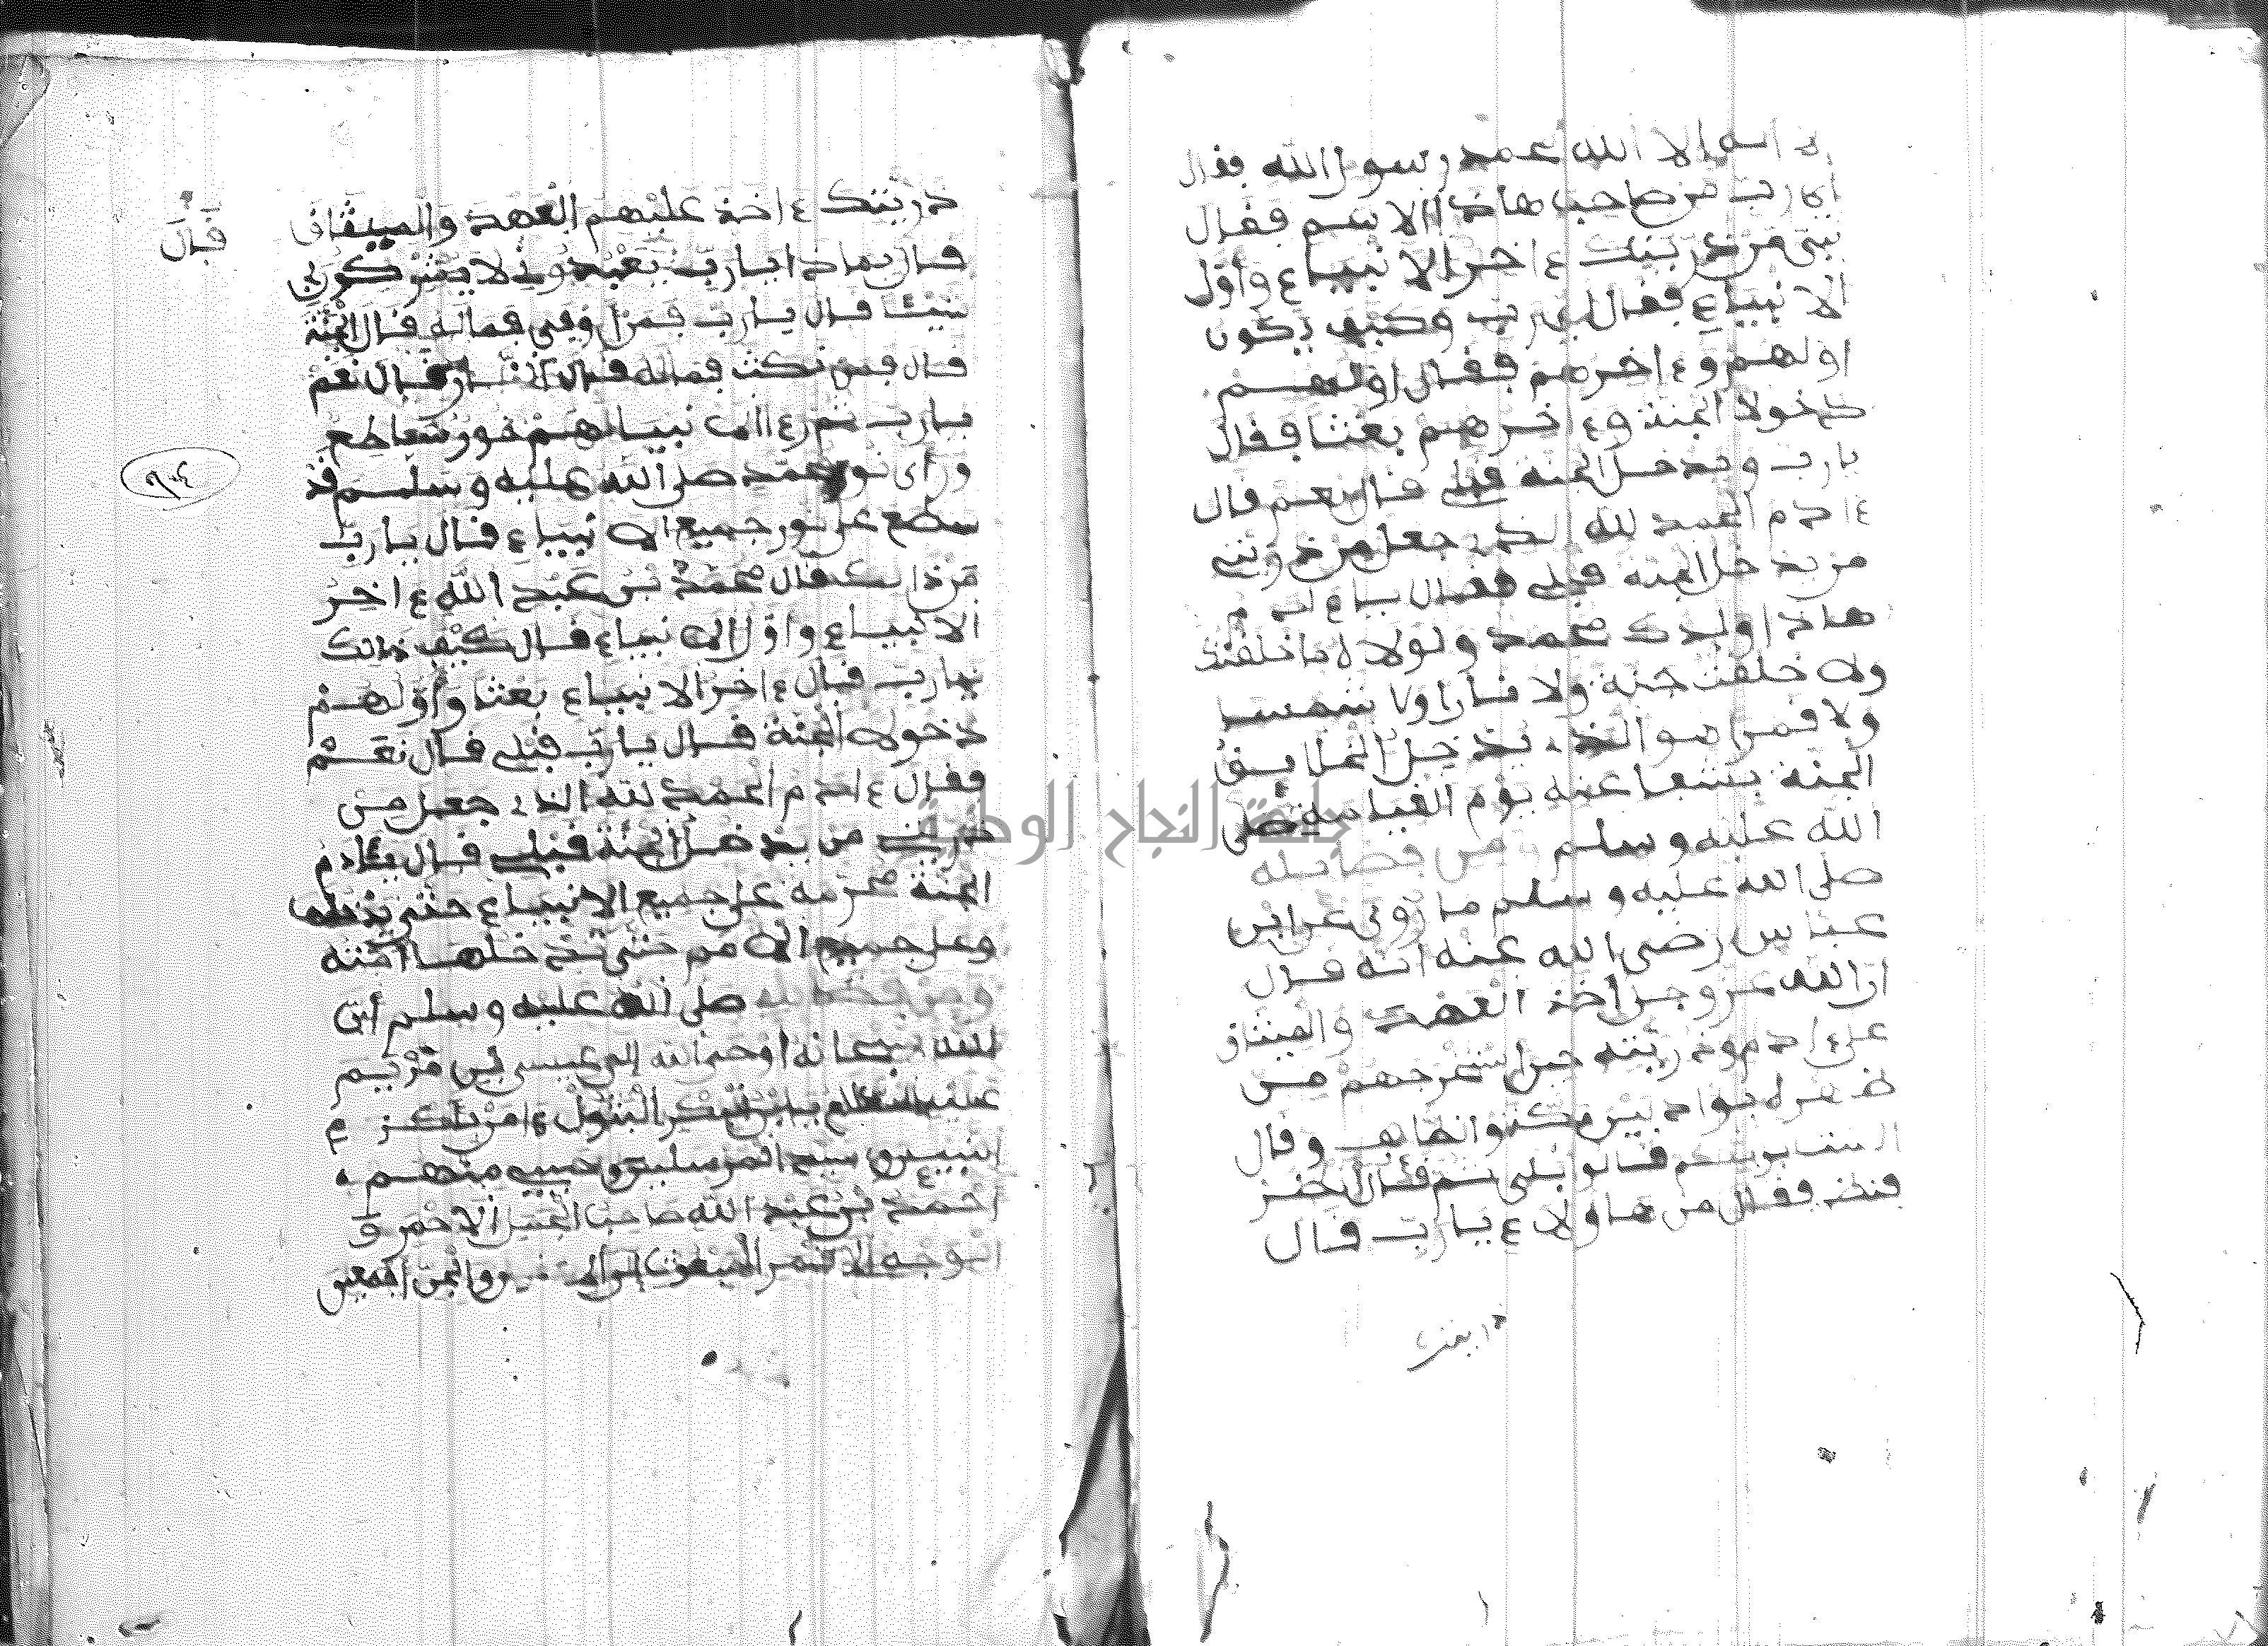 لا اله الا الله محمد رسول الله فقال
اي رب من صاحب هاذا الاسم فقال
نبي من ذريتك ءاخر الانبياء وأول
الانبياء فقال اي رب وكيف يكون
اولهم وءاخرهم فقال اولهم
دخولا الجنة وءاخرهم بعثا فقال
يارب ويدخل الجنة قبلي قال نعم قال
ءادم الحمد لله الذي جعل من ذريتي
من يدخل الجنة قبلي فقال ياءادم
هاذا ولدك محمد ولولاه ما خلقتك
ولا خلقت جنة ولا نارا ولا شمسا
ولا قمرا هو الذي يدخل الخلايق
الجنة بشفاعته يوم القيامة صلى
الله عليه وسلم من فضايله
صلى الله عليه وسلم ما روي عن ابن
عباس رضي الله عنه انه قال
ان الله عز وجل أخذ العهد والميثاق
على ءادم وذريته حين استخرجهم من
ظهره بواد بين مكة والطايف وقال
الست بربكم قالوا بلى ثم قال انظر
فنظر فقال من هاولاء يارب قال
ذريتك ءاخذ عليهم العهد والميثاق
قال بماذا يارب يعبدوني لا يشركون بي
شيئا قال يارب فمن وفى فماله قال الجنة
قال فمن نكث فماله قال النار قال نعم
يارب ثم رءا الانبيا لهم نور ساطع
ورأى نور محمد صلى الله عليه وسلم قد
سطع على نور جميع الانبياء قال يارب
من ذالك قال محمد بن عبد الله ءاخر
الانبياء واول الانبياء قال كيف ذالك
يارب قال ءاخر الانبياء بعثا وأولهم
دخولا الجنة قال يارب قبلي قال نعم
فقال ءادم الحمد لله الذي جعل من
ذريتي من يدخل الجنة قبلي قال ياءادم
الجنة محرمة على جميع الانبياء حتى يدخلها
وعلى جميع الامم حتى تدخلها امته
ومن فضايله صلى الله عليه وسلم أن
الله سبحانه اوحى الله الى عيسى بن مريم
عليه السلام يا ابن البكر البتول ءامن
النبيين وسيد المرسلين وحبيبي منهم
احمد بن عبد الله صاحب الجمل الاحمر و
الوجه الاقمر المبعوث الى والجن اجمعين
قال
جامعة النجاح الوطنية